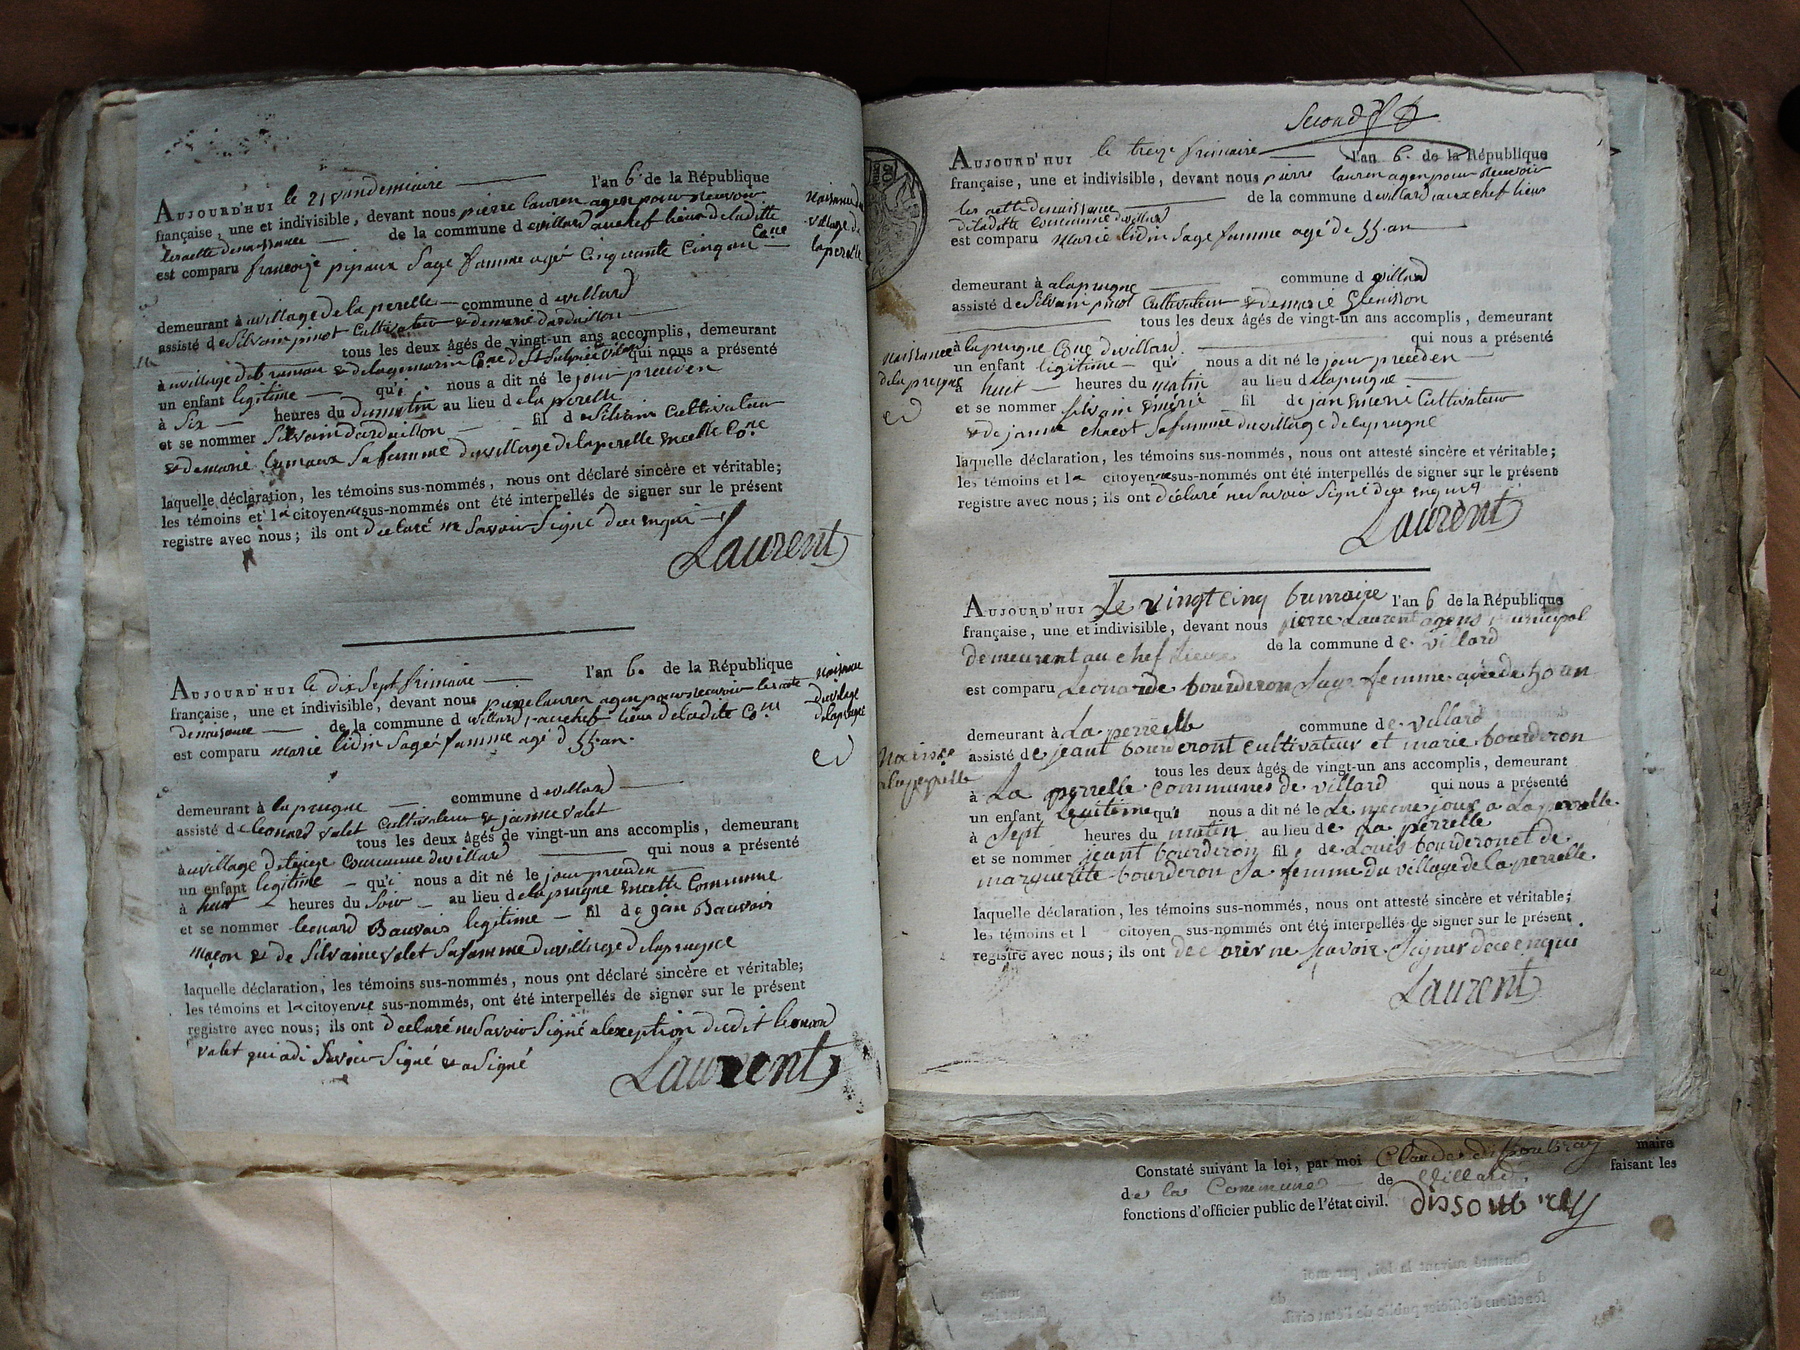 AUJOURD'HUI le 21 vandemiaire l'an 6. de la République
française, une et indivisible, devant nous pierre lauren agen pour recevoir
les acte denaissance de la commune d evillard au chef lieux de laditte
Cone
est comparu françoize pipaux Sage famme agé Cinquante Cinq an
naissance
village de
laperelle
demeurant à uvillage de la perelle commune d evillard
assisté de Silvain pinot Cultivateur & demarie dardaillon
tous les deux âgés de vingt-un ans accomplis, demeurant
qui nous a présenté
un enfant legitime qu'i nous a dit né le jour preceden
à Six heures du du matin au lieu d ela perelle
et se nommer Silvain dardaillon fil d eSilvain Cultivateur
& demarie lumaux Safamme du village de laperelle encelle Cone
laquelle déclaration, les témoins sus-nommés, nous ont déclaré sincère et véritable;
les témoins et la citoyenne sus-nommés ont été interpellés de signer sur le présent
registre avec nous; ils ont declaré ne Savoir Signé dece enqui
Laurent
AUJOURD'HUI le dix Sept frimaire l'an 6. de la République
française, une et indivisible, devant nous pierre lauren agen pour recevoir les acte
denaisance de la commune d evillard, au chef lieux deladite Cone
est comparu marie lidin Sage famme agé d 55. an.
naisance
du vilage
delaprugne
demeurant à laprugne commune d evillard
assisté de leonard valet Cultivateur & janne valet
tous les deux âgés de vingt-un ans accomplis, demeurant
à uvillage Commune devillard qui nous a présenté
un enfant legitime qu'i nous a dit né le jour preceden
à huit heures du Soir au lieu d elaprugne encette Commune
et se nommer leonard Bauvais legitime fil de jean Bauvais
maçon & de Silvaine valet Safamme du village d elaprugne
laquelle déclaration, les témoins sus-nommés, nous ont déclaré sincère et véritable;
les témoins et la citoyenne sus-nommés, ont été interpellés de signer sur le présent
registre avec nous; ils ont declaré ne Savoir Signé alexeption dudit leonard
valet qui adi Savoir Signé & a Signé
Laurent
Second
AUJOURD'HUI le treze frimaire l'an 6. de la République
française, une et indivisible, devant nous pierre lauren agen pour recevoir
les acte denaissance de la commune d evillard au chef lieux
deladitte Commune devillard
est comparu marie lidin Sage famme agé de 55. an
demeurant à alaprugne commune d evillard
assisté de Silvain pinot Cultivateur & demarie Glenisson
tous les deux âgés de vingt-un ans accomplis, demeurant
à laprugne Cone devillard. qui nous a présenté
naissance
delaprugne
un enfant legitime qu'i nous a dit né le jour preceden
à huit heures du matin au lieu d elaprugne
et se nommer Silvain émerié fil de jean émerié Cultivateur
& de janne chacot Safamme du village de laprugne
laquelle déclaration, les témoins sus-nommés, nous ont attesté sincère et véritable;
les témoins et la citoyenne sus-nommés ont été interpellés de signer sur le présent
registre avec nous; ils ont déclaré ne Savoir Signé dece enqui
Laurent
AUJOURD'HUI Le vingt cinq bumaire l'an 6 de la République
française, une et indivisible, devant nous pierre Laurent agens municipal
demeurent au chef lieux de la commune d e villard
est comparu Leonarde bourderon Sage femme agée de 50 an
demeurant à La perrelle commune d e villard
assisté de jeant bourderont cultivateur et marie bourderon
naisse
alaperrelle
tous les deux âgés de vingt-un ans accomplis, demeurant
à La perrelle communes de villard qui nous a présenté
un enfant Legitime qu'i nous a dit né le Le meme jour a La perrelle
à Sept heures du matin au lieu de La perrelle
et se nommer jeant bourderon fil de Louis bourderon et de
marguerite bourderon Sa femme du village de la perrelle
laquelle déclaration, les témoins sus-nommés, nous ont attesté sincère et véritable;
les témoins et l citoyen sus-nommés ont été interpellés de signer sur le présent
registre avec nous; ils ont declarer ne Savoir Signer dece enqui
Laurent
Constaté suivant la loi, par moi Claude dissoubray maire
de la Commune de Villard faisant les
fonctions d'officier public de l'état civil. dissoubray